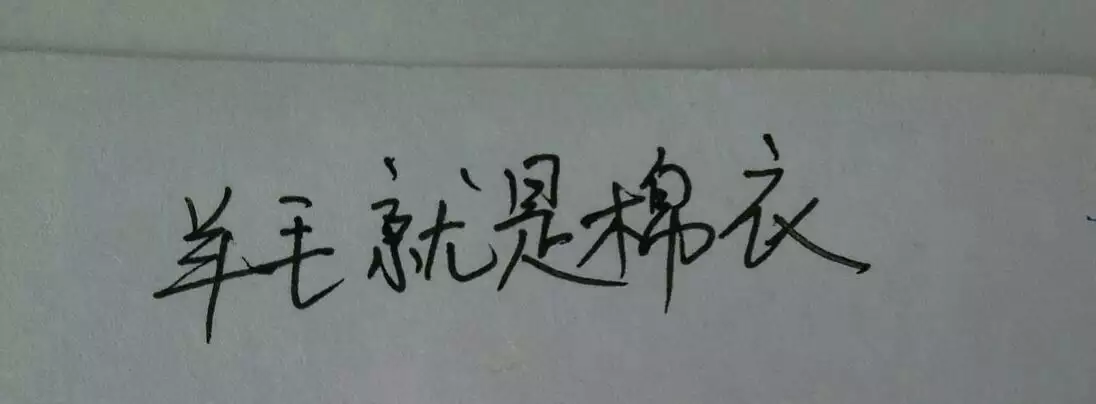 羊毛就是棉衣